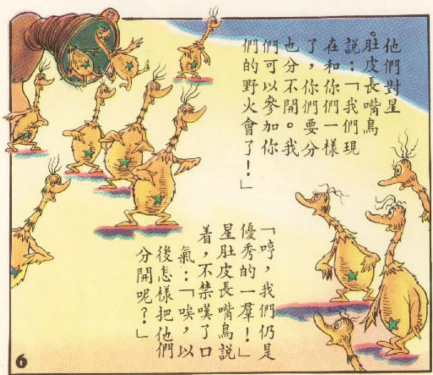 他們對星
肚皮長嘴鳥
說:「我們現
在和你們一樣
了,你們要分
也分不開。我
們可以參加你
們的野火會了!」
「哼,我們仍是
優秀的一羣!」
星肚皮長嘴鳥說
着,不禁嘆了口
氣:「唉,以
後怎樣把他們
分開呢?」
6